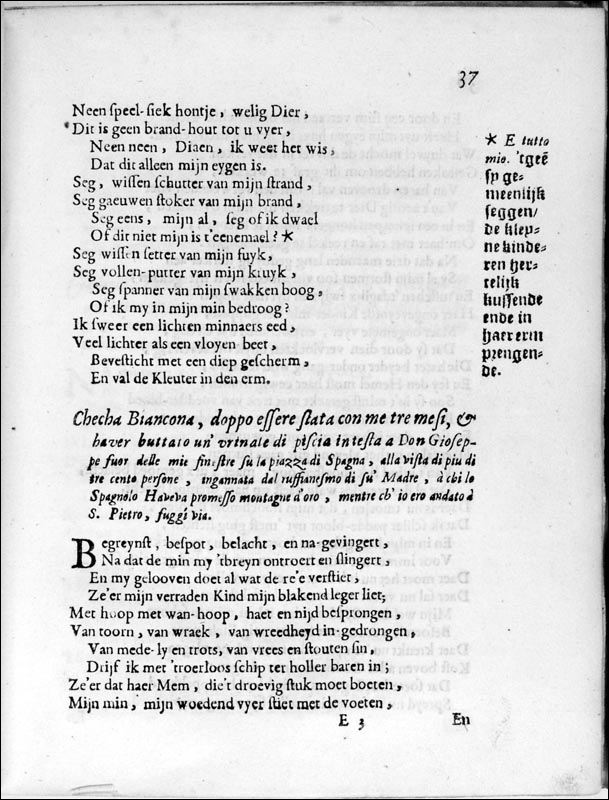 37
Neen ſpeel-ſiek hontje, welig Dier,
Dit is geen brand-hout tot u vyer,
Neen neen, Diaen, ik weet het wis,
Dat dit alleen mijn eygen is.
Seg, wiſſen ſchutter van mijn ſtrand,
Seg gaeuwen ſtoker van mijn brand,
Seg eens, mijn al, ſeg of ik dwael
Of dit niet mijn is t'eenemael? *
Seg wiſſen ſetter van mijn fuyk,
Seg vollen-putter van mijn kruyk,
Seg ſpanner van mijn ſwakken boog,
Of ik my in mijn min bedroog?
Ik ſweer een lichten minnaers eed,
Veel lichter als een vloyen beet,
Beveſticht met een diep geſcherm,
En val de Kleuter in den erm.
* E tutto
mio. 'tgeẽ
ſy ge-
meenlijk
ſeggen/
de klep-
ne kinde-
ren her-
telijk
kuſſende
ende in
haer erm
prengen-
de.
Checha Biancona, doppo eſſere ſtata con me tre meſi, &
haver buttato un' vrinale di piſcia in teſta a Don Gioſep-
pe fuor delle mie fineſtre ſu la piazza di Spagna, alla viſta di piu di
tre cento perſone, ingannata dal ruffianeſmo di ſu' Madre, à chi lo
Spagnolo Haveva promeſſo montagne d'oro, mentre ch' io ero andato à
S. Pietro, fuggì via.
Begreynſt, beſpot, belacht, en na-gevingert,
Na dat de min my 'tbreyn ontroert en ſlingert,
En my gelooven doet al wat de re'e verſtiet,
Ze'er mijn verraden Kind mijn blakend leger liet;
Met hoop met wan-hoop, haet en nijd beſprongen,
Van toorn, van wraek, van wreedheyd in-gedrongen,
Van mede-ly en trots, van vrees en ſtouten ſin,
Drijf ik met 'troerloos ſchip ter holler baren in;
Ze'er dat haer Mem, die't droevig ſtuk moet boeten,
Mijn min, mijn woedend vyer ſtiet met de voeten,
E 3
En